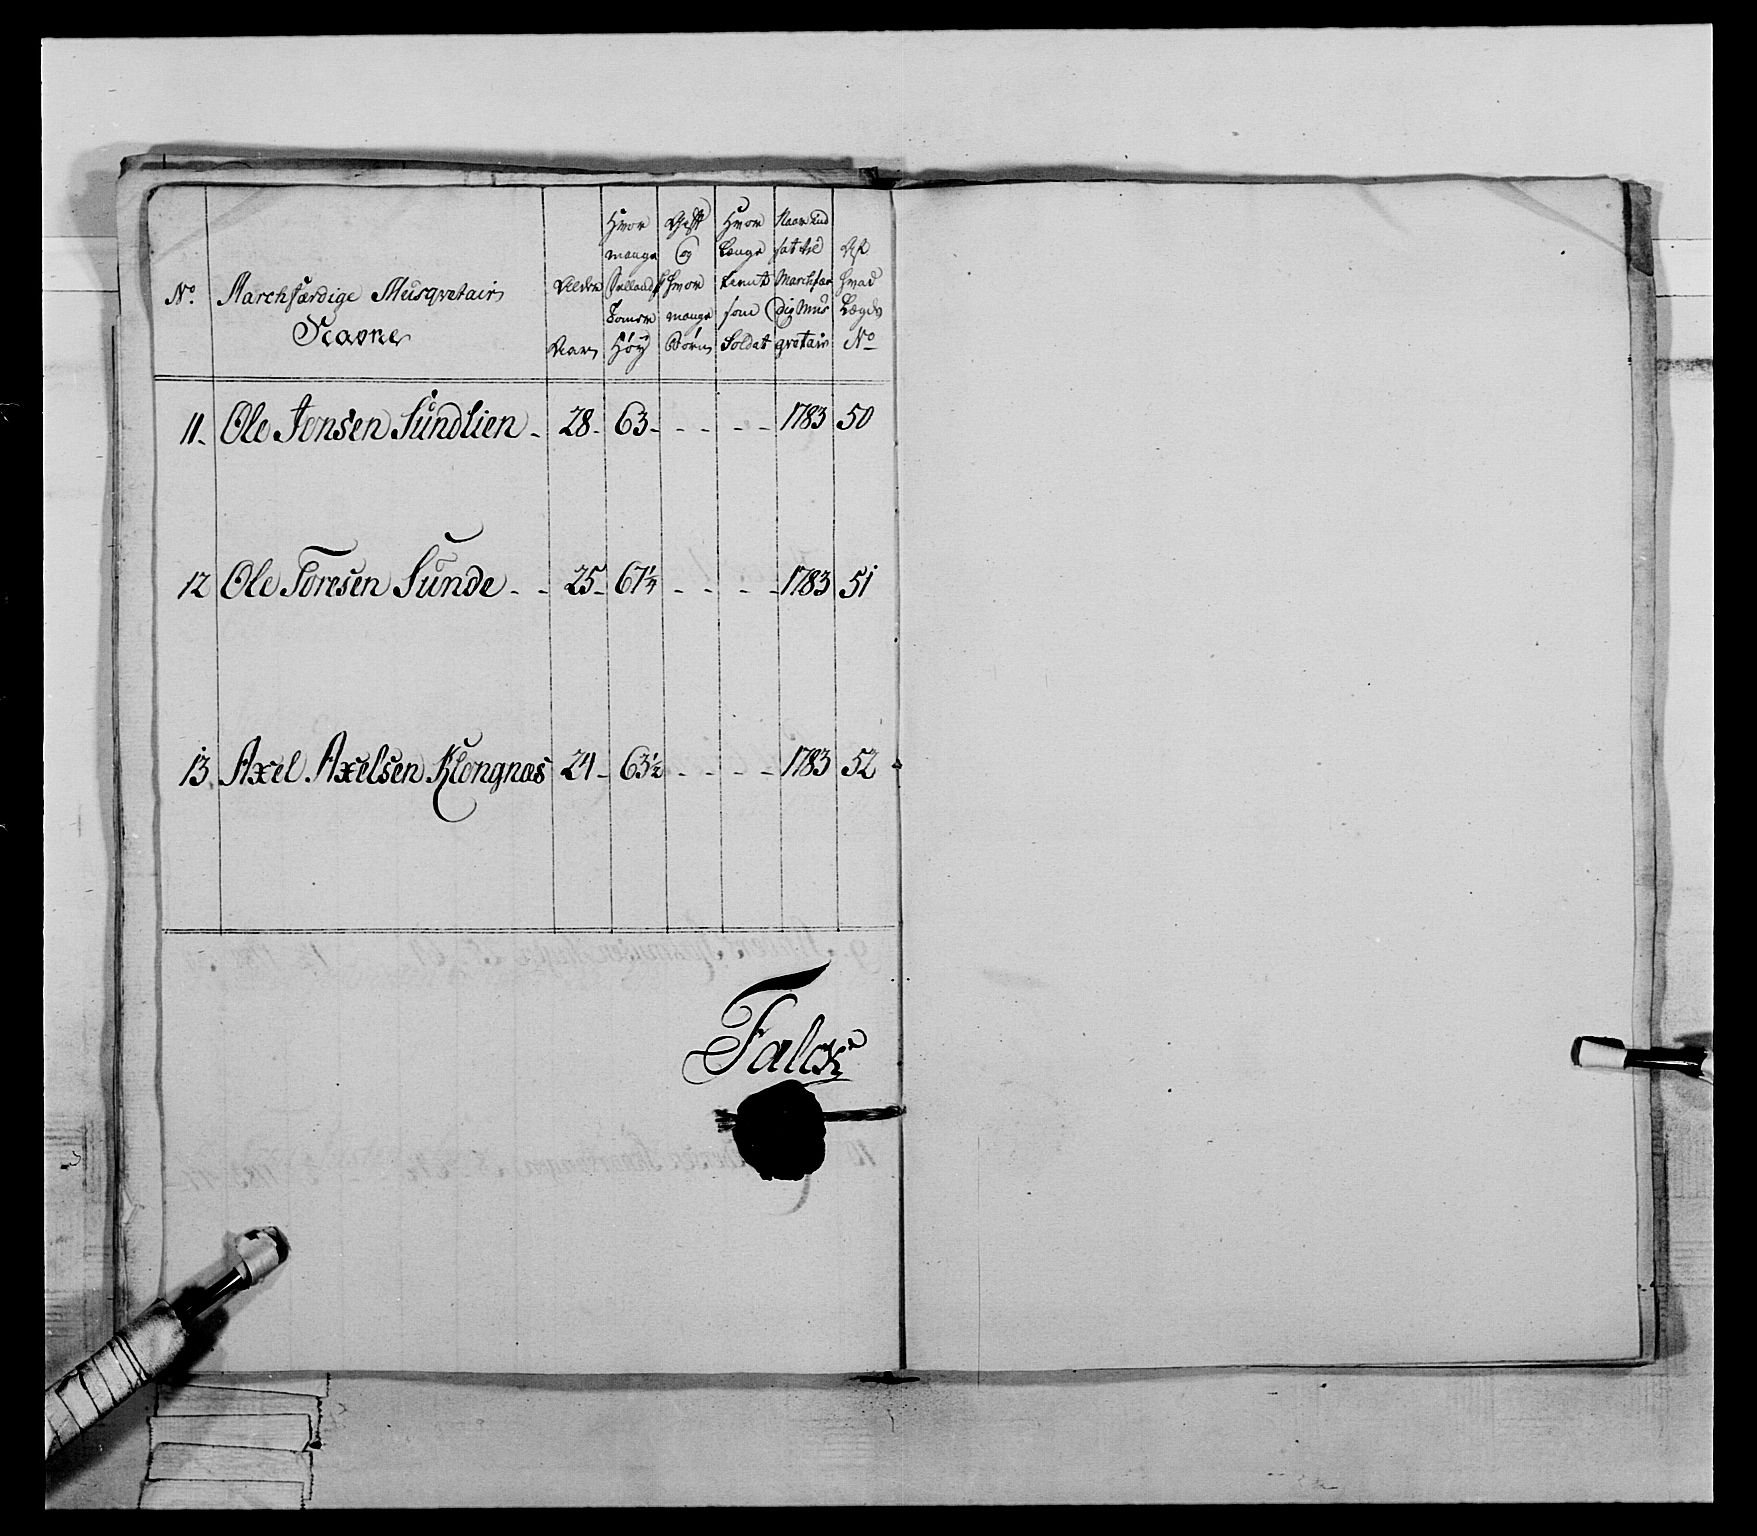 No. Marchfærdige Musqvetair Navne Alder Aar Hvor mange Sellands Tomer Höy Gift og Hvor mange Börn Hvor Længe tient som Soldat Naar Ind sat til Marchfær dig Mus qvetair Af hvad Lægds No
11. Ole Jonsen Sundlien - 28 - 63 - - - - - 1783 50
12 Ole Toresen Sunde - - 25 - 67¼ - - - - 1783 51
13. Axel Axelsen Klongnæs 24 - 63½ - - - - 1783 52
Falck